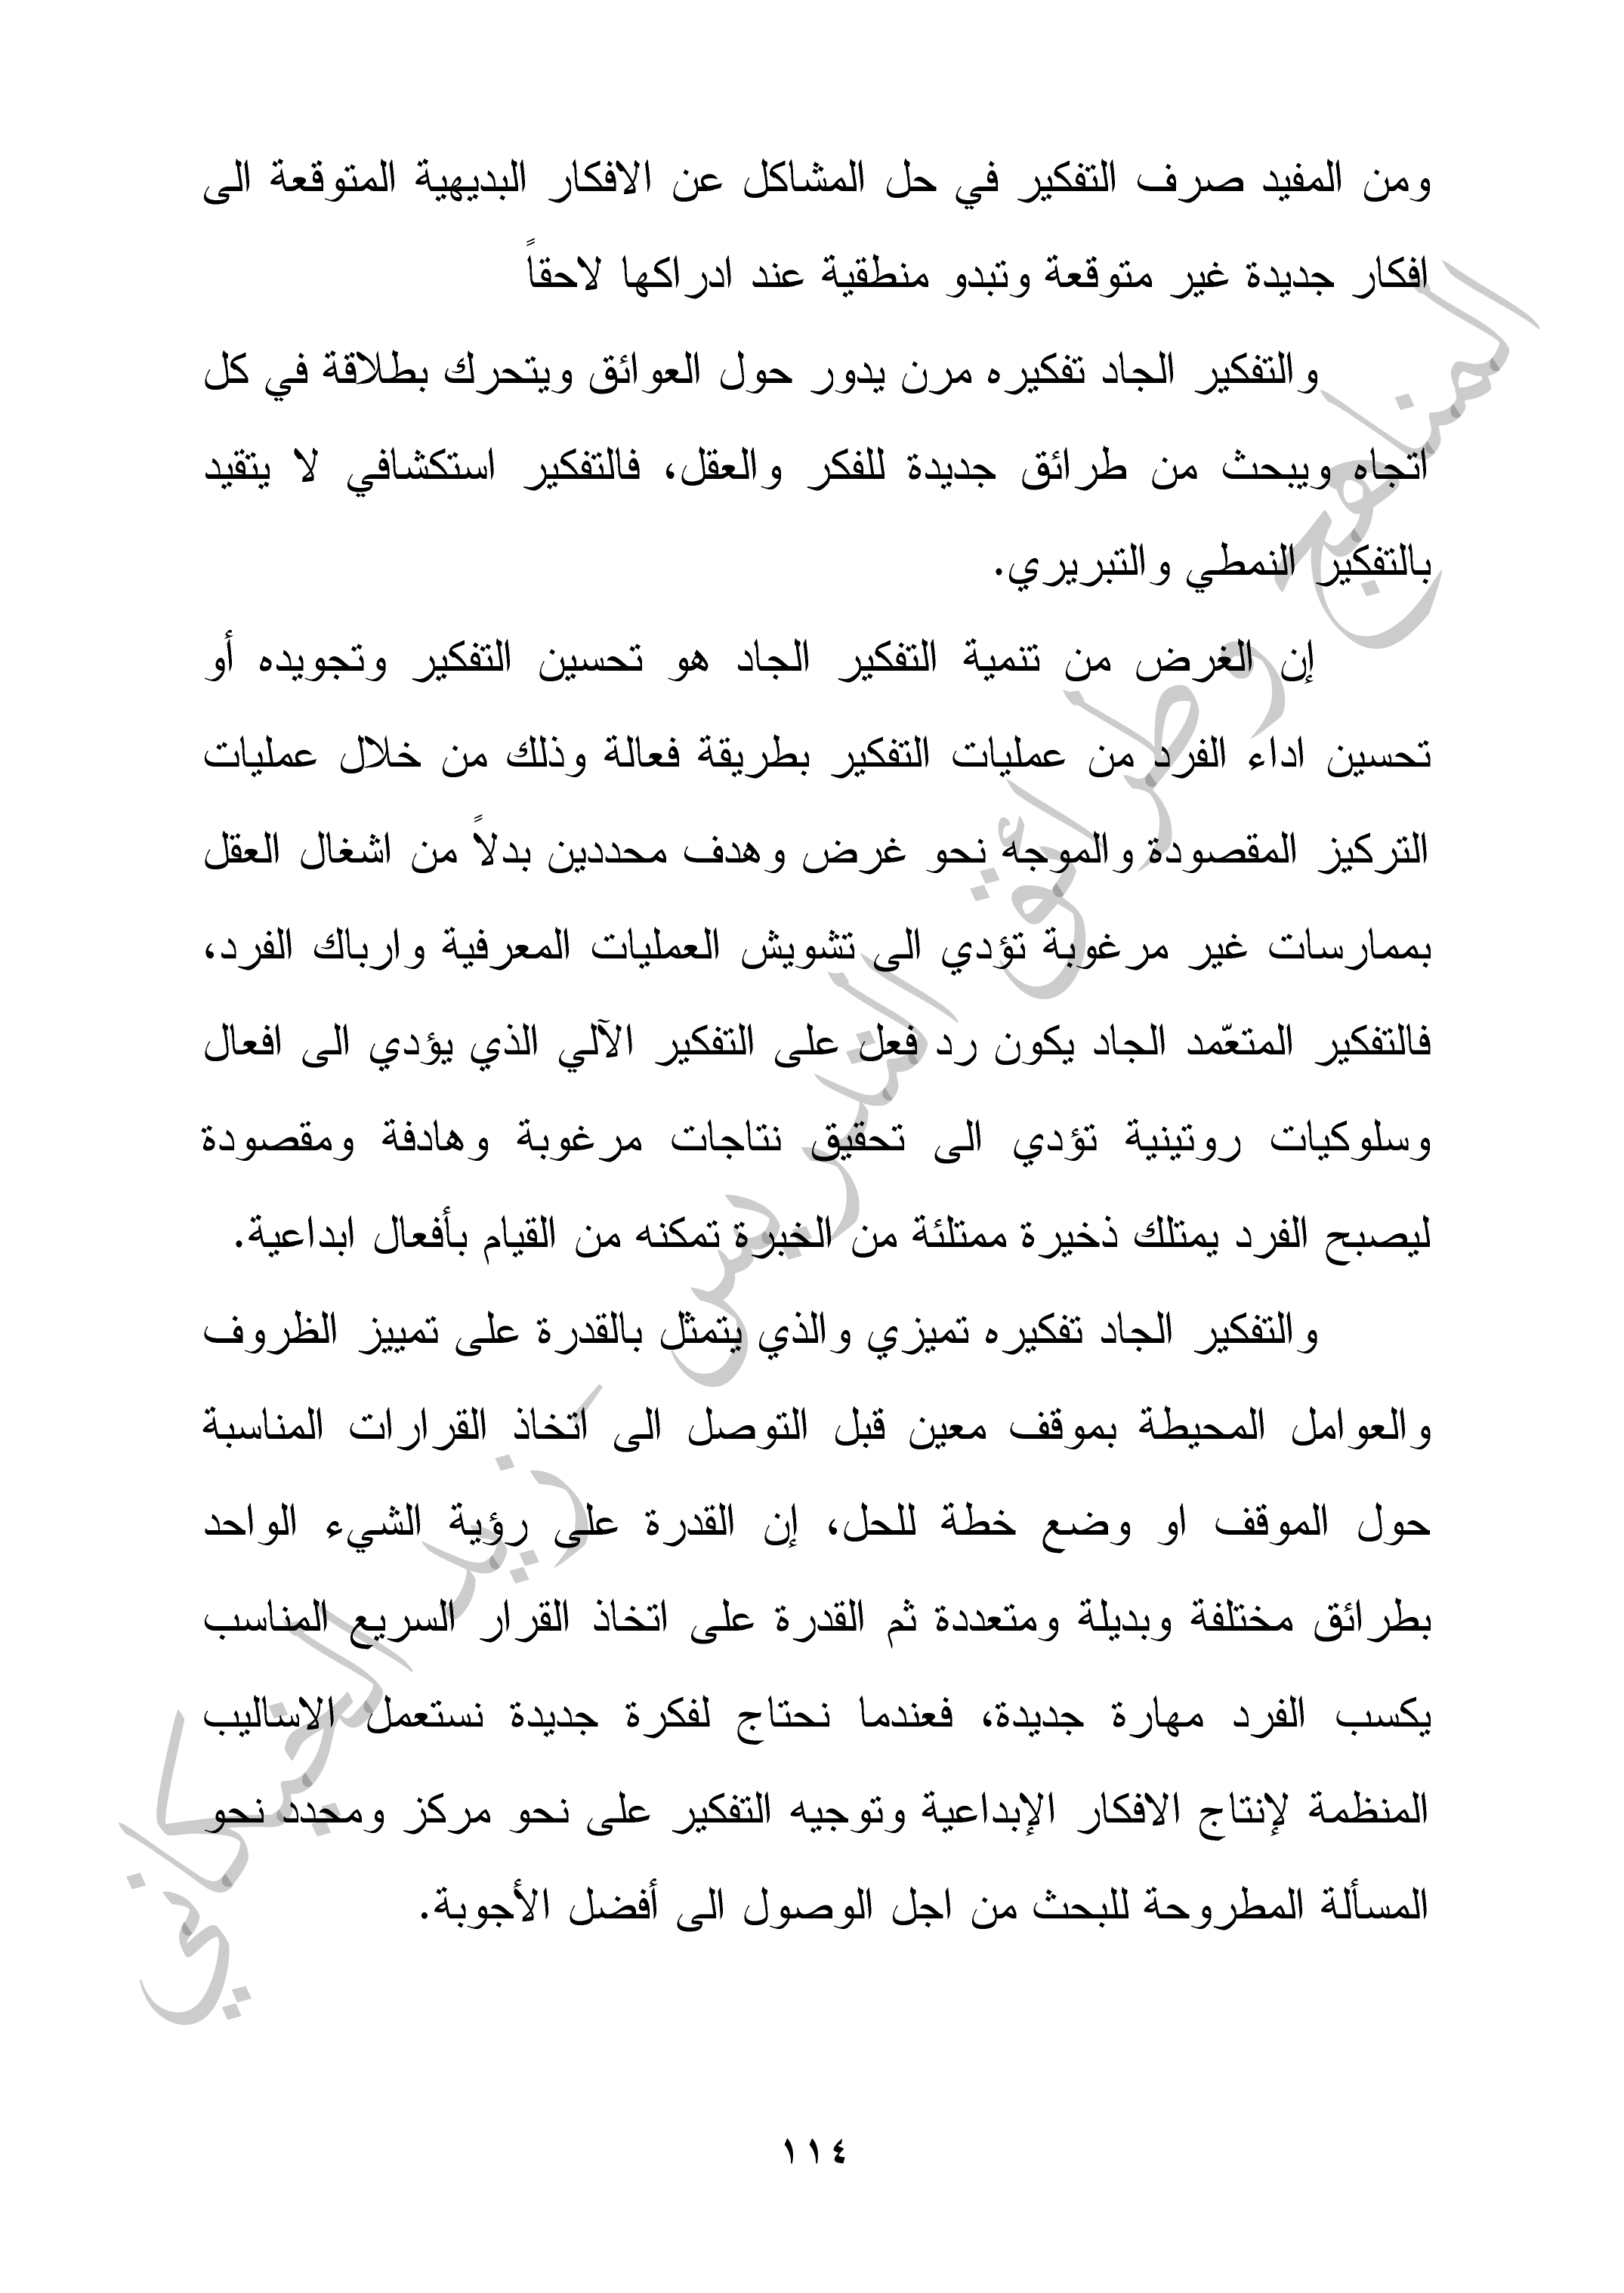 ومن المفيد صرف التفكير في حل المشاكل عن الافكار البديهية المتوقعة الى
افكار جديدة غير متوقعة وتبدو منطقية عند ادراكها لاحقاً
والتفكير الجاد تفكيره مرن يدور حول العوائق ويتحرك بطلاقة في كل
اتجاه ويبحث من طرائق جديدة للفكر والعقل، فالتفكير استكشافي لا يتقيد
بالتفكير النمطي والتبريري.
إن الغرض من تنمية التفكير الجاد هو تحسين التفكير وتجويده أو
تحسين اداء الفرد من عمليات التفكير بطريقة فعالة وذلك من خلال عمليات
التركيز المقصودة والموجه نحو غرض وهدف محددين بدلاً من اشغال العقل
بممارسات غير مرغوبة تؤدي الى تشويش العمليات المعرفية وارباك الفرد،
فالتفكير المتعّمد الجاد يكون رد فعل على التفكير الآلي الذي يؤدي الى افعال
وسلوكيات روتينية تؤدي الى تحقيق نتاجات مرغوبة وهادفة ومقصودة
ليصبح الفرد يمتلك ذخيرة ممتلئة من الخبرة تمكنه من القيام بأفعال ابداعية.
والتفكير الجاد تفكيره تميزي والذي يتمثل بالقدرة على تمييز الظروف
والعوامل المحيطة بموقف معين قبل التوصل الى اتخاذ القرارات المناسبة
حول الموقف او وضع خطة للحل، إن القدرة على رؤية الشيء الواحد
بطرائق مختلفة وبديلة ومتعددة ثم القدرة على اتخاذ القرار السريع المناسب
يكسب الفرد مهارة جديدة، فعندما نحتاج لفكرة جديدة نستعمل الاساليب
المنظمة لإنتاج الافكار الإبداعية وتوجيه التفكير على نحو مركز ومحدد نحو
المسألة المطروحة للبحث من اجل الوصول الى أفضل الأجوبة.
المناهج وطرائق التدريس _ زيد الخيكاني
١١٤